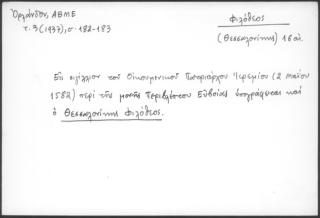 Ὀρλάνδος, ΑΒΜΕ
τ. 3 (1937), σ. 182-183
Φιλόθεος
(Θεσσαλονίκης) 16 αἰ.
Εἰς σιγίλλιον τοῦ Οἰκουμενικοῦ Πατριάρχου Ἱερεμίου (2 μαΐου
1582) περὶ τῆς μονῆς Περιβλέπτου Εὐβοίας ὑπογράφεται καὶ
ὁ Θεσσαλονίκης Φιλόθεος.